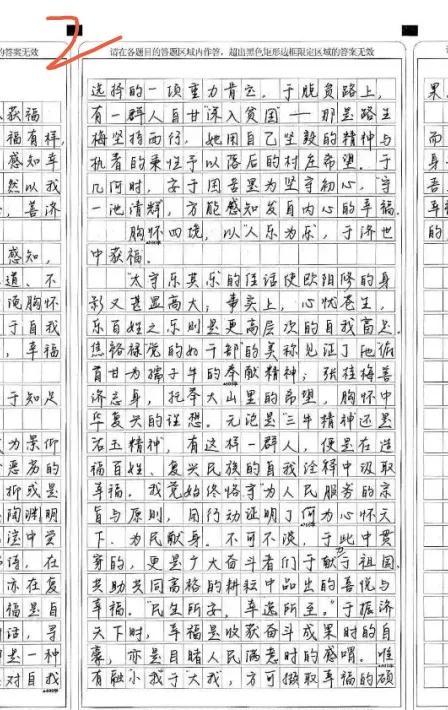 的答案无效
请在各题目的答题区域内作答，超出黑色矩形边框限定区域的答案无效
选择的一项重力肯云，于脱贫路上，
有一群人自甘“深入贫困”——那是路生
梅坚持西行，她用自己坚毅的精神与
执者的秉性予以落后的村庄希望。于
几何时，安于困苦里为坚守初心，“守
一池清辉，方能感知发自内心的幸福。
胸怀四境，以“人乐为乐”，于济世
中获福。
“太守乐其乐”的佳话使欧阳修的身
影又甚显高大；事实上，心忧苍生，
乐百姓之乐则是更高层次的自我满足。
焦裕禄“党的好干部”的美称见证了他俯
首甘为孺子牛的奉献精神；张桂梅善
济忘身，托举大山里的希望，胸怀中
华复兴的理想。无论是“三牛精神”还是
有这样一群人，便是在造
福百姓、复兴民族的自我诠释中汲取
幸福。我党始终恪守“为人民服务”的宗
旨与原则，用行动证明了何为心怀天
下、为民献身。不可不谈，于此中贯
穿的，更是广大奋斗者们于献力于祖国
共助共同富裕的耕耘中品出的喜悦与
幸福。“民生所安，幸逸所至。”于振济
天下时，幸福是收获奋斗成果时的自
豪，亦是目睹人民满意时的感喟。唯
有融“小我”于“大我”，方可撷取幸福的硕
获福
福有样，
感知幸
然以我
，善济
感知，
道、不
胸怀
于自我
，幸福
于知足
为景仰
抑或是
陶渊明
法中爱
语，在
亦在复
福是自
话，寻
是一种
对自我
果，